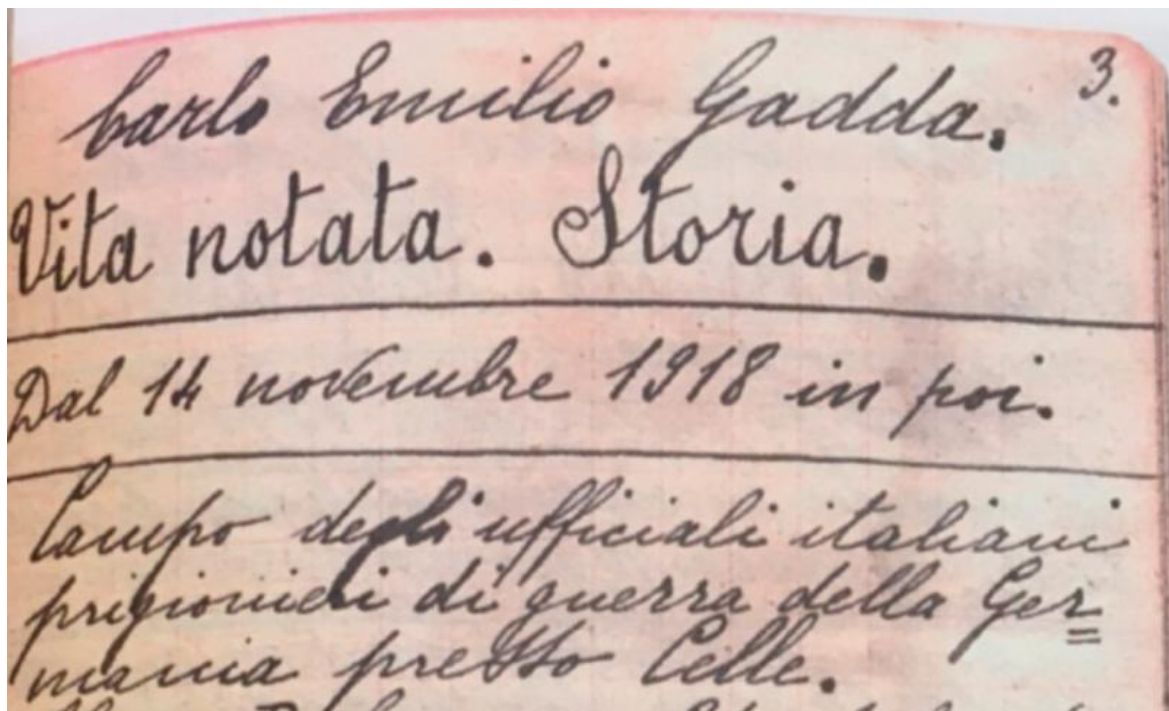 3.
Carlo Emilio Gadda.
Vita notata. Storia.
Dal 14 novembre 1918 in poi.
Campo degli ufficiali italiani
prigionieri di guerra della Ger=
mania presso Celle.